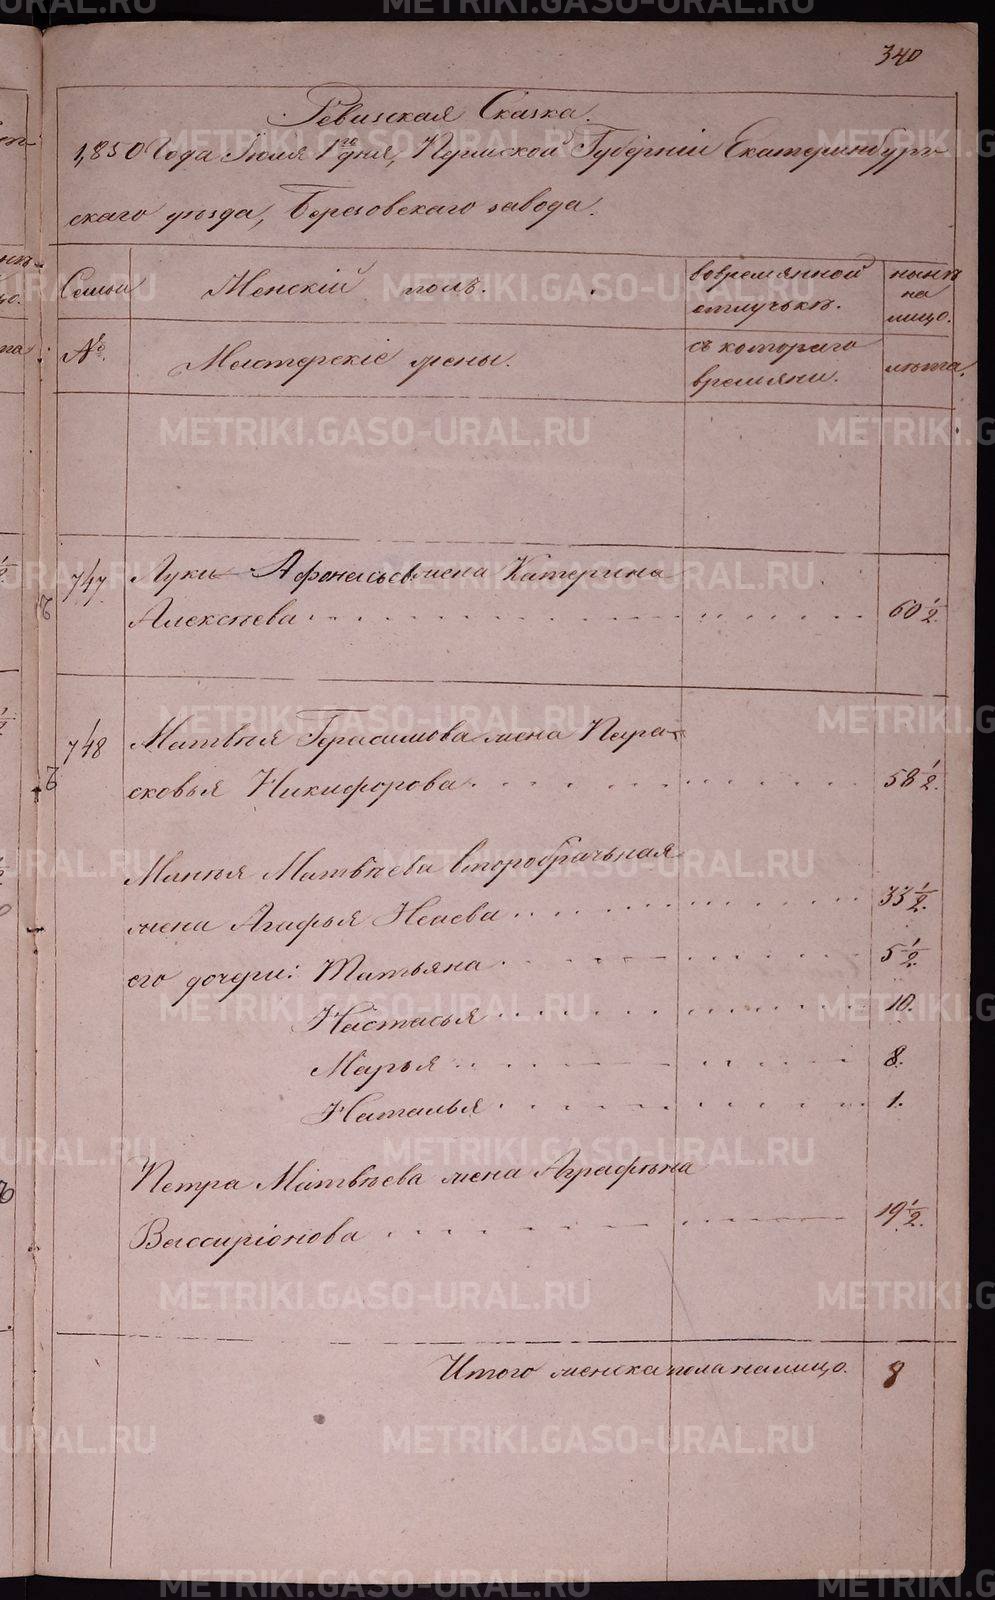 340
Ревизская Сказка.
1850 Года Июля 1го дня, Пермской Губерніи Екатеринбург-
скаго уезда, Березовскаго завода.
Семьи
Женскій полъ.
вовремянной
отлучькѣ.
нынѣ
на
лицо.
№
Мастерскіе жены.
съ котораго
времяни.
лѣта.
747
Луки Афонасьев жена Катерина
Алексѣева
60 1/2.
748
Матвѣя Герасимова жена Пара-
сковья Никифорова
58 1/2.
Матвѣева второбрачьная
жена Агафья Исаева
33 1/2.
его дочери: Татьяна
5 1/2.
Настасья
10.
Марья
8.
Наталья
1.
Петра Матвѣева жена Аграфѣна
Вассиріонова
19 1/2.
Итого женска пола налицо.
8
METRIKI.GASO-URAL.RU